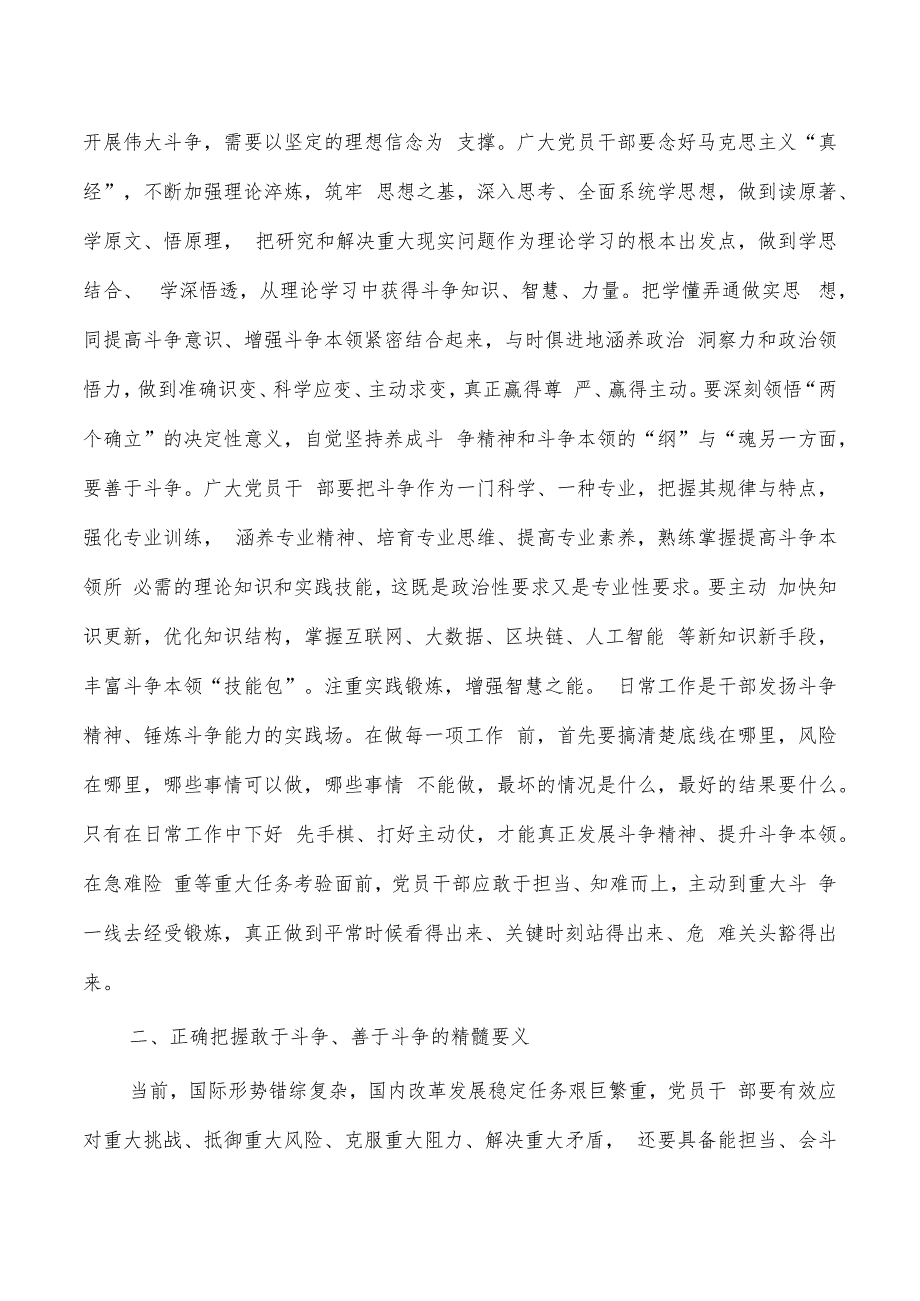 开展伟大斗争，需要以坚定的理想信念为 支撑。广大党员干部要念好马克思主义“真
经”，不断加强理论淬炼，筑牢 思想之基，深入思考、全面系统学思想，做到读原著、
学原文、悟原理， 把研究和解决重大现实问题作为理论学习的根本出发点，做到学思
结合、 学深悟透，从理论学习中获得斗争知识、智慧、力量。把学懂弄通做实思 想，
同提高斗争意识、增强斗争本领紧密结合起来，与时俱进地涵养政治 洞察力和政治领
悟力，做到准确识变、科学应变、主动求变，真正赢得尊 严、赢得主动。要深刻领悟“两
个确立”的决定性意义，自觉坚持养成斗 争精神和斗争本领的“纲”与“魂另一方面，
要善于斗争。广大党员干 部要把斗争作为一门科学、一种专业，把握其规律与特点，
强化专业训练， 涵养专业精神、培育专业思维、提高专业素养，熟练掌握提高斗争本
领所 必需的理论知识和实践技能，这既是政治性要求又是专业性要求。要主动 加快知
识更新，优化知识结构，掌握互联网、大数据、区块链、人工智能 等新知识新手段，
丰富斗争本领“技能包”。注重实践锻炼，增强智慧之能。 日常工作是干部发扬斗争
精神、锤炼斗争能力的实践场。在做每一项工作 前，首先要搞清楚底线在哪里，风险
在哪里，哪些事情可以做，哪些事情 不能做，最坏的情况是什么，最好的结果要什么。
只有在日常工作中下好 先手棋、打好主动仗，才能真正发展斗争精神、提升斗争本领。
在急难险 重等重大任务考验面前，党员干部应敢于担当、知难而上，主动到重大斗 争
一线去经受锻炼，真正做到平常时候看得出来、关键时刻站得出来、危 难关头豁得出
来。
二、正确把握敢于斗争、善于斗争的精髓要义
当前，国际形势错综复杂，国内改革发展稳定任务艰巨繁重，党员干 部要有效应
对重大挑战、抵御重大风险、克服重大阻力、解决重大矛盾， 还要具备能担当、会斗